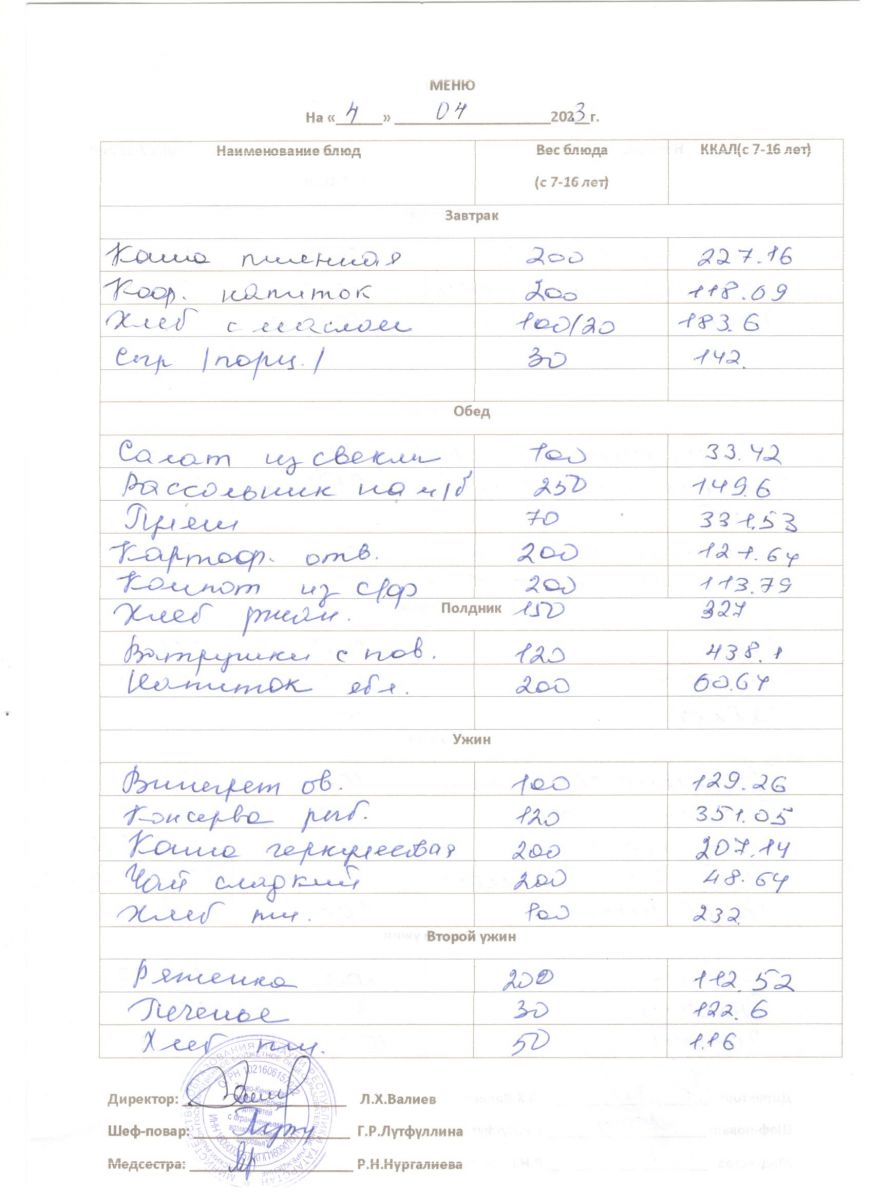 МЕНЮ
На « 4 » 04 2023 г.
Наименование блюд Вес блюда ККАЛ(с 7-16 лет)
(с 7-16 лет)
Завтрак
Каша пшенная 200 227.16
Коф. напиток 200 118.09
Хлеб с маслом 100/20 183.6
Сыр /порц./ 30 142.
Обед
Салат из свеклы 100 33.42
Рассольник на м/б 250 149.6
70 331,53
Картоф. отв. 200 121.64
Компот из с/ф 200 113.79
Хлеб ржан. Полдник 150 327
Ватрушки с пов. 120 438.1
Напиток ябл. 200 60.64
Ужин
Винегрет ов. 100 129.26
Консерва рыб. 120 351.05
Каша геркулесовая 200 207.14
Чай сладкий 200 48.64
Хлеб пш. 100 232
Второй ужин
Ряженка 200 112.52
Печенье 30 122.6
Хлеб пш. 50 116
Директор: Л.Х.Валиев
Шеф-повар: Г.Р.Лутфуллина
Медсестра: Р.Н.Нургалиева